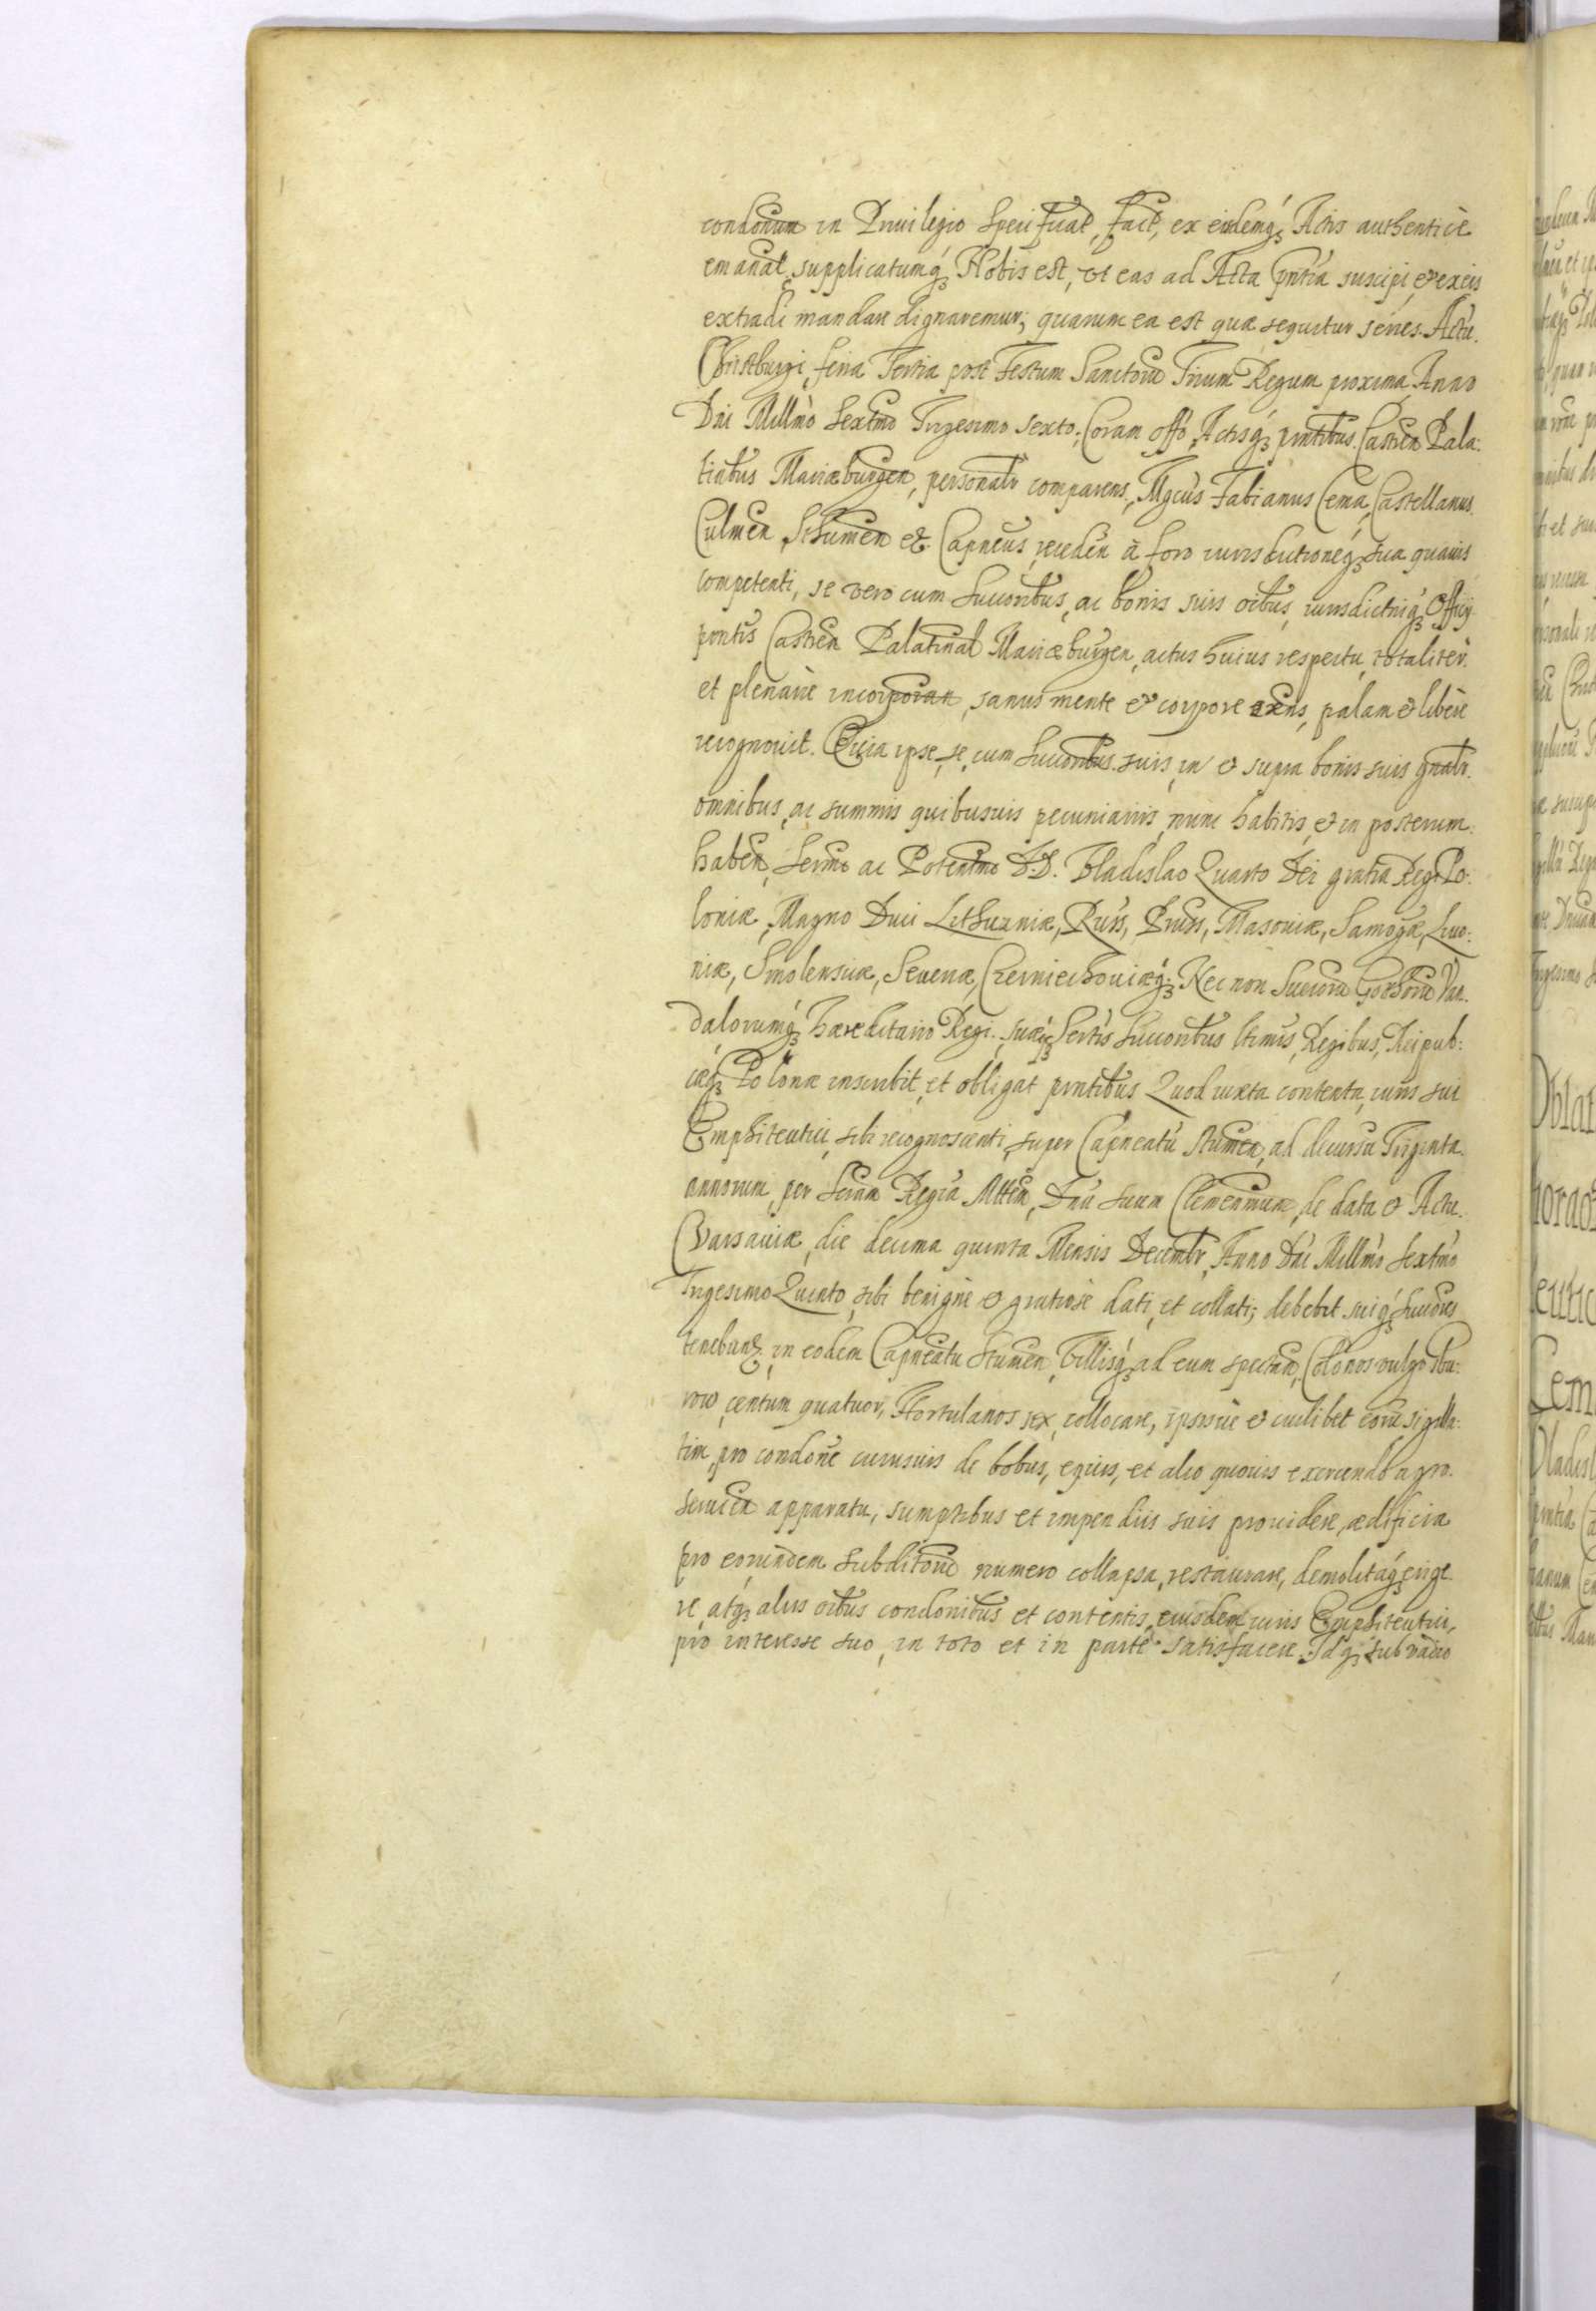 condonum in Priuilegio specificat, fact, ex eisdemq; Actis authenticè
emanat, supplicatumq; Nobis est, vt eas ad Acta pñtia suscipi, et ex eis
extradi mandare dignaremur; quarum ea est quæ sequitur series. Actũ.
Christburgi, feria Tertia post Festum Sanctorũ Trium Regum proxima, Anno
Dni Millmo Sextmo Trigesimo sexto. Coram offo, Actisq; pñtibus. Castren Pala:
tinibus Mariæburgen, personalr comparens, Mgcus Fabianus Cema, Castellanus
Culmen, Sthumen etc. Capneus, receden à foro iurisdictioneq; sua quauis
competenti, se vero cum succoribus, ac bonis suis oibus, iurisdictniq; Officij
pñtis Castren Palatinal Mariæburgen, actus huius respectu, totaliter
et plenariè incorporan, sanus mente et corpore exens, palam et liberè
recognouit. Quia ipse, se, cum succoribus suis, in et supra bonis suis gnalr
omnibus, ac summis quibusuis pecuniariis, nunc habitis, et in posterum
haben, Sermo ac Potentmo D.D. Vladislao Quarto Dei gratia Regi Po:
loniæ, Magno Duci Lithuaniæ, Russ, Pruss, Masouiæ, Samogæ, Liuo:
niæ, Smolensciæ, Seueriæ, Czerniechouiæq; Nec non Suecorũ Gothorũ Van
dalorumq; hæreditario Regi. suæq; Sertis succoribus ltimis, Regibus, Reipub:
cæq; Polonæ inscribit, et obligat pñtibus Quod iuxta contenta, iuris sui
Emphiteutici, sibi recognoscenti, super Capneatũ Stumen, ad decursũ Triginta
annorum, per Seram Regia Mttem, Dnũ suum Clemenmum, de data et Actu
Varsauiæ, die decima quinta Mensis Decembr, Anno Dni Millmo Sextmo
Trigesimo Quinto, sibi benignè et gratiosè dati, et collati; debebit suiq; succores
tenebunt, in eodem Capneatu Stumen, Villisq; ad eum spectan, Colonos vulgo Bu:
row, centum quatuor, Hortulanos sex, collocare, ipsisue et cuilibet eorũ sigilla:
tim, pro condone cuiusuis de bobus, equis, et alio quouis exercendo agro
seruien apparatu, sumptibus et impendiis suis prouidere, ædificia
pro eorundem subditorũ numero collapsa, restaurare, demolitaq; erige
re, atq; aliis oibus condonibus et contentis, eiusdem iuris Emphiteutici,
pro interesse suo, in toto et in parte satisfacere. Idq; sub vadio